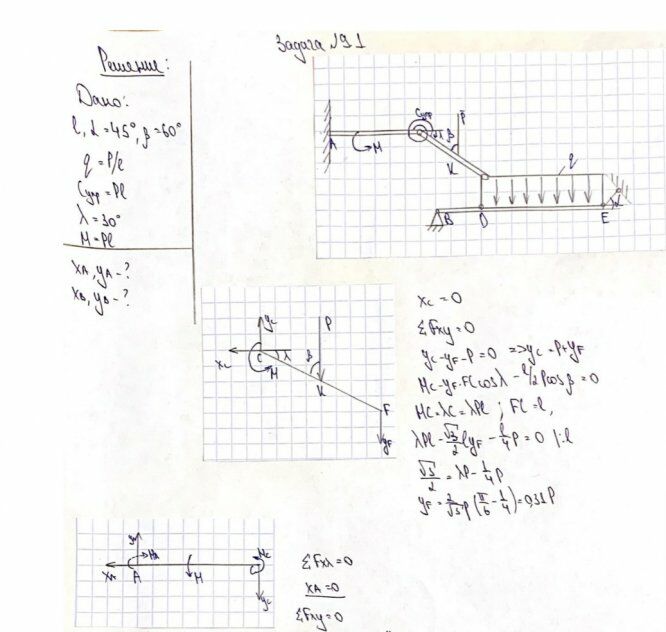 Задача №9.1
Решение:
Дано:
l, α=45°, β=60°
q = P/l
Cупр = Pl
λ = 30°
M = Pl
XA, YA - ?
XB, YB - ?
A
M
Cупр
λ
β
P
K
q
B
D
E
α
yc
P
xc
C
λ
β
M
K
F
yF
xc = 0
ΣFxy = 0
yc - yF - P = 0 => yc = P + yF
Mc - yF·FC cosλ - l/2 P cosβ = 0
MC = λC = λPl ; FC = l,
λPl - √3/2 l yF - l/4 P = 0 |:l
√3/2 = λP - 1/4 P
yF = 2/√3 P (π/6 - 1/4) = 0,31P
yA
MA
Mc
XA
A
M
yc
ΣFxλ = 0
XA = 0
ΣFxy = 0